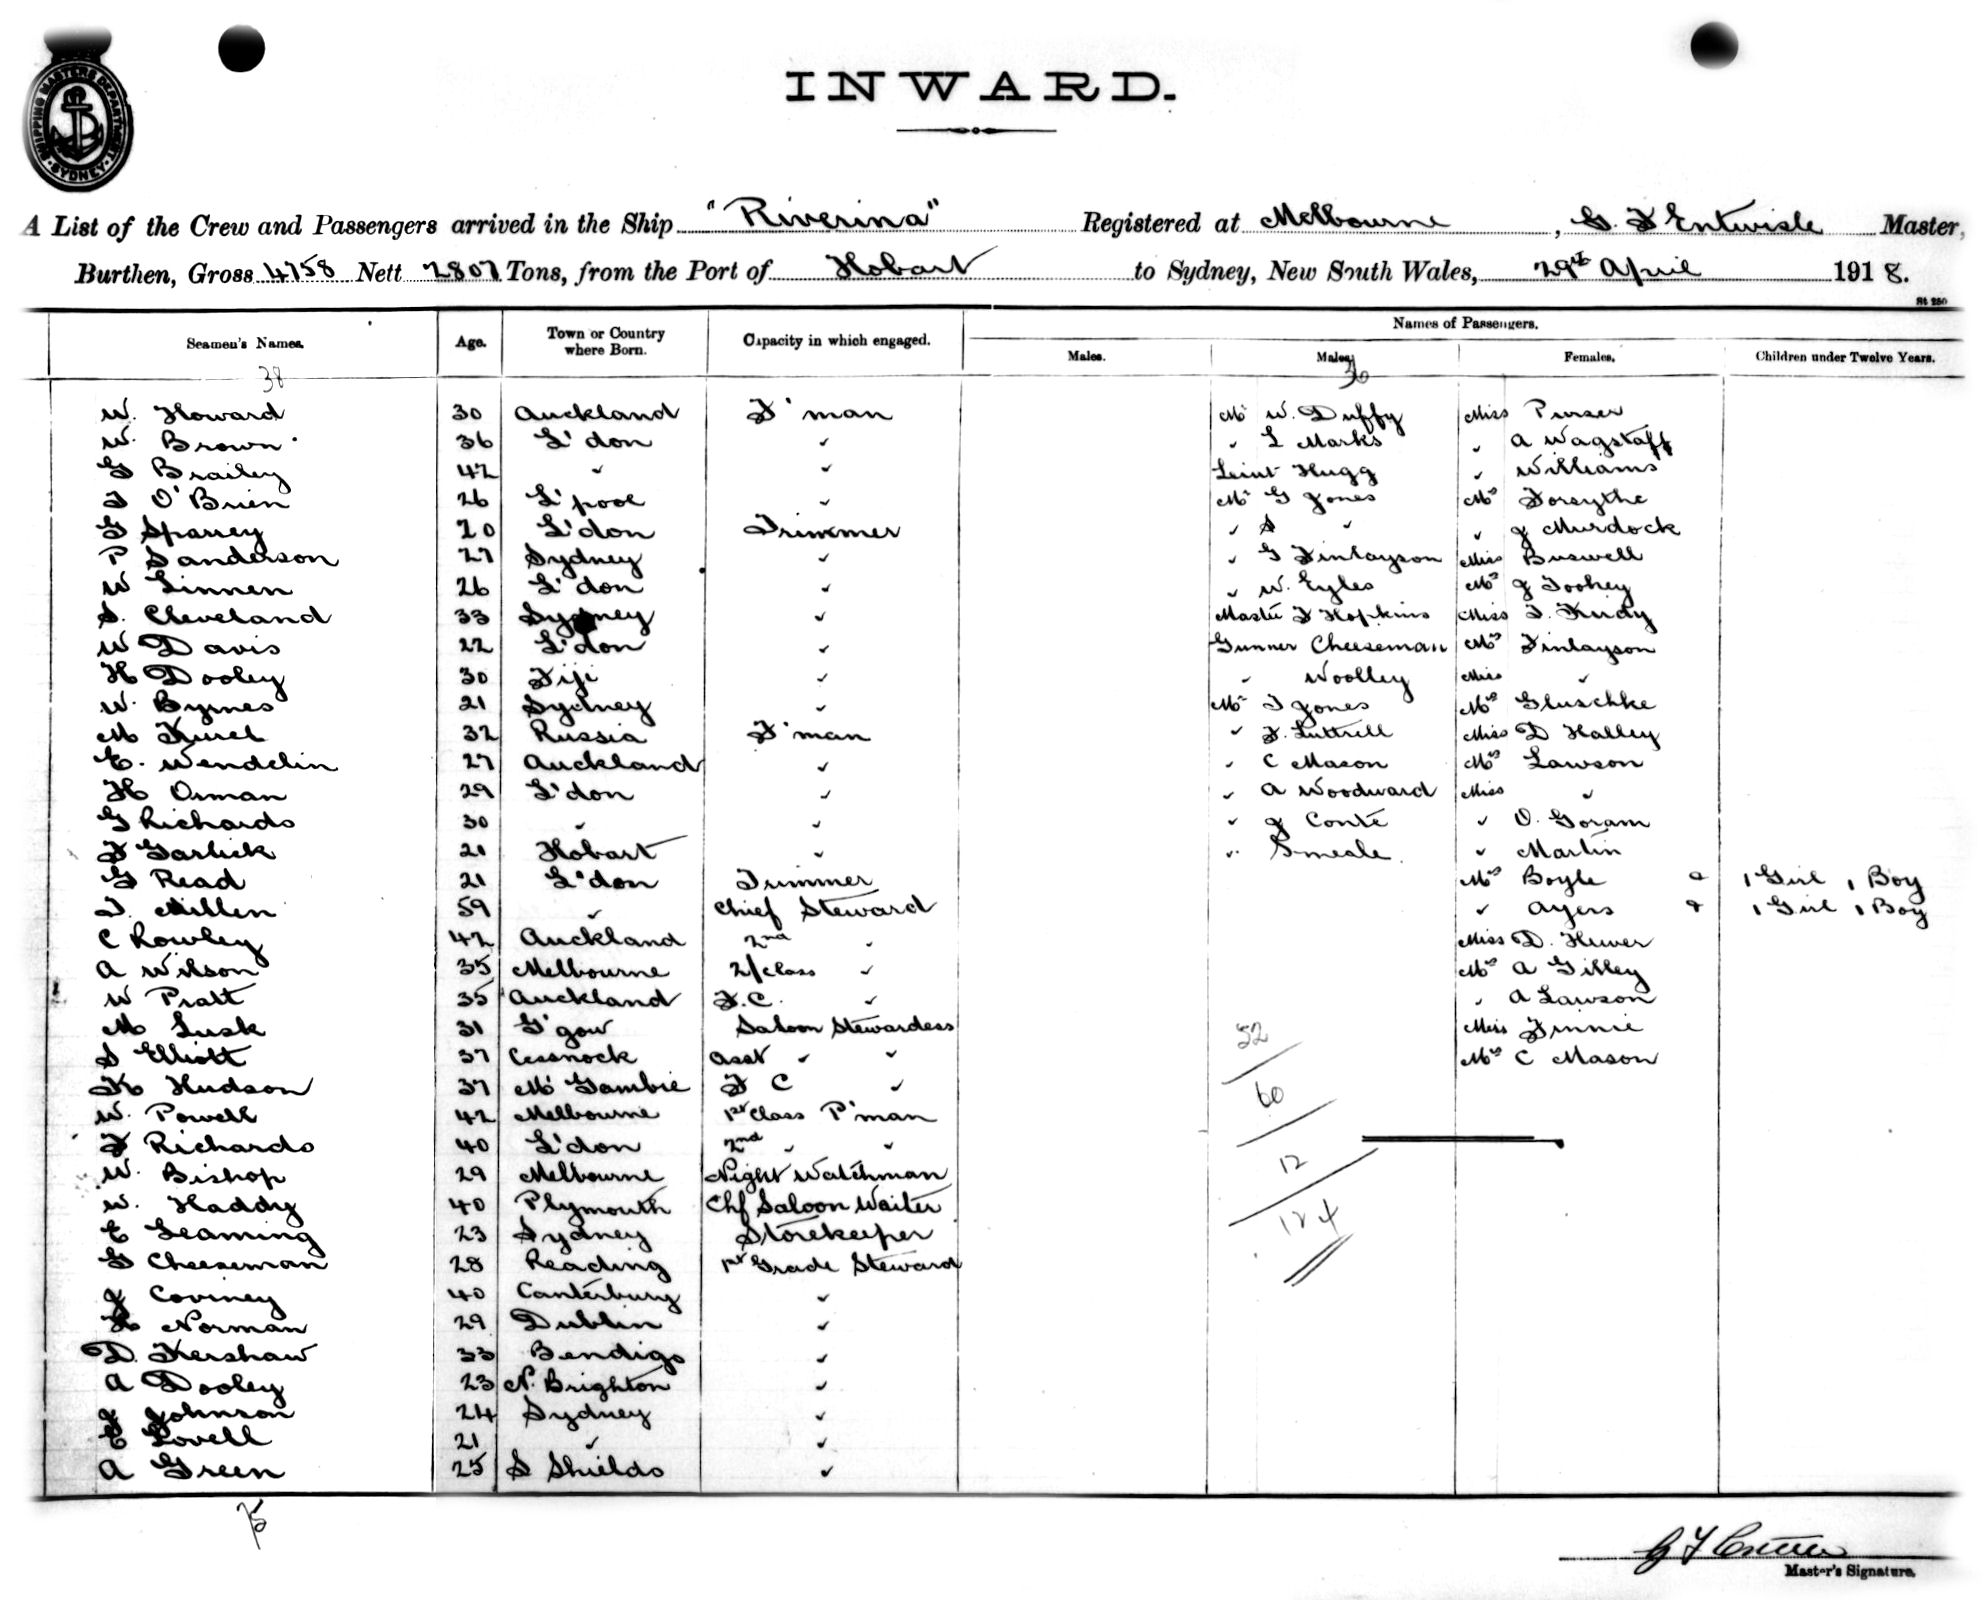 SHIPPING MASTERS DEPARTMENT SYDNEY
INWARD.
A List of the Crew and Passengers arrived in the Ship "Riverina" Registered at Melbourne, G. F Entwisle Master,
Burthen, Gross 4758 Nett 2807 Tons, from the Port of Hobart to Sydney, New South Wales, 29th April 1918.
St 250
Seamen's Names. Age. Town or Country where Born. Capacity in which engaged. Names of Passengers.
Males. Males. Females. Children under Twelve Years.
38 36
W. Howard 30 Auckland F'man Mr W. Duffy Miss Purser
W. Brown 36 L'don " " L Marks " A Wagstaff
G Brailey 42 " " Leiut Hugg " Williams
J O'Brien 26 L'pool " Mr G Jones Mrs Forsythe
G Sparrey 20 L'don Trimmer " S " " J Murdock
P Sanderson 27 Sydney " " G Finlayson Miss Buswell
W Linnen 26 L'don " " W. Eyles Mrs J Toohey
S. Cleveland 33 Sydney " Master F Hopkins Miss
W Davis 22 L'don " Gunner Cheeseman Mrs Finlayson
H Dooley 30 Fiji " " Woolley Miss "
W. Byrnes 21 Sydney " Mr T Jones Mrs Gluschke
M 32 Russia F'man " F. Luttrell Miss D Halley
E. Wendelin 27 Auckland " " C Mason Mrs Lawson
H Orman 29 L'don " " A Woodward Miss "
G Richards 30 " " " J Conte " O. Goram
F Garlick 21 Hobart " " Smeale " Martin
G Read 21 L'don Trimmer Mrs Boyle & 1 Girl 1 Boy
T. Millen 59 " Chief Steward " Ayers & 1 Girl 1 Boy
C Rowley 42 Auckland 2nd " Miss D.
A Wilson 35 Melbourne 2/class " Mrs A Gilley
W Pratt 35 Auckland F.C. " " A Lawson
M Lusk 31 G'gow Saloon Stewardess Miss Finnie
S Elliott 37 Cessnock Asst " " Mrs C Mason
K Hudson 37 Mt Gambie F C "
W. Powell 42 Melbourne 1st Class P'man
F Richards 40 L'don 2nd " "
W. Bishop 29 Melbourne Night Watchman
W. Haddy 40 Plymouth Chf Saloon Waiter
E Leaming 23 Sydney Storekeeper
G Cheeseman 28 Reading 1st Grade Steward
J Coviney 40 Canterbury "
H Norman 29 Dublin "
D. Kershaw 33 Bendigo "
A Dooley 23 N. Brighton "
J Johnson 24 Sydney "
E Lovell 21 " "
A Green 25 S Shields "
52
60
12
124
75
Master's Signature.